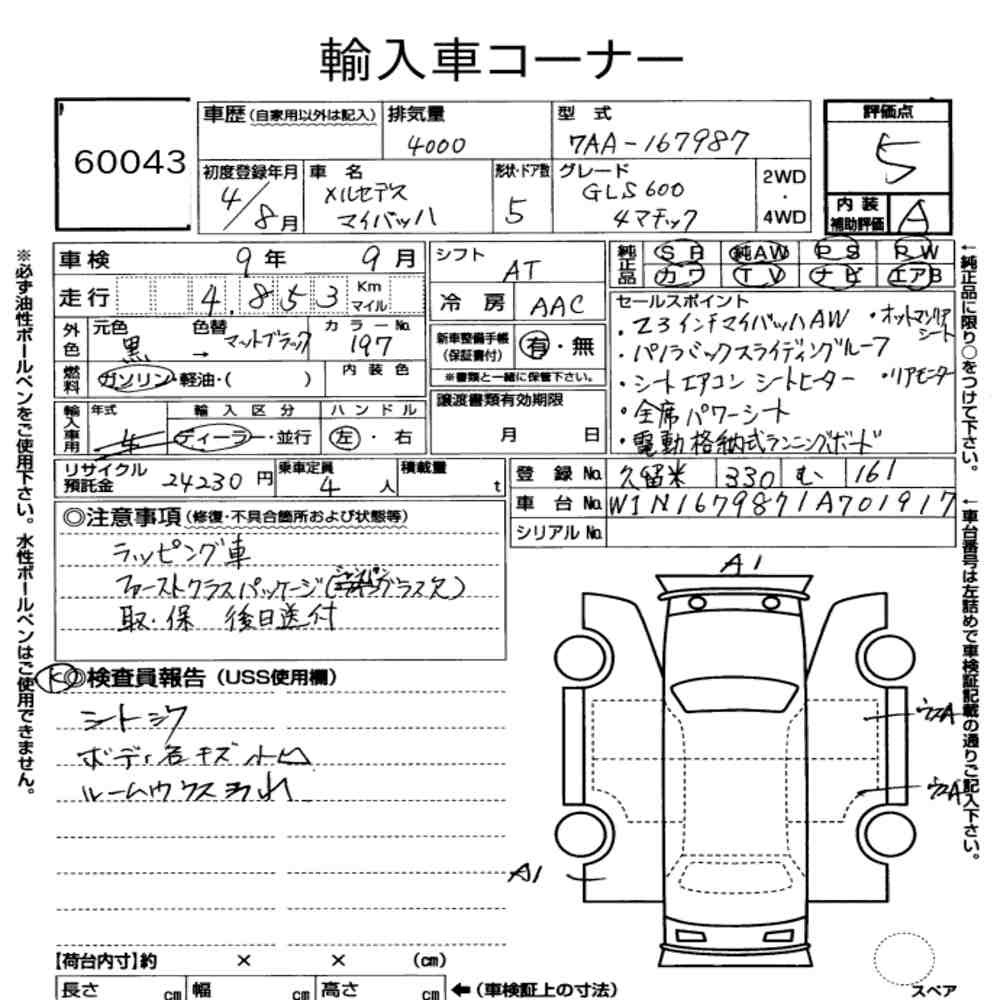 輸入車コーナー
60043
車歴(自家用以外は記入)
排気量
4000
型式
7AA-167987
評価点
5
初度登録年月
4/8月
車名
メルセデス
マイバッハ
形状・ドア数
5
グレード
GLS600
4マチック
2WD
・
4WD
内装
補助評価
A
車検 9年 9月
シフト
AT
純正品
SR 純AW PS PW
カワ TV ナビ エアB
走行 4.853 Km
マイル
冷房 AAC
セールスポイント
・23インチマイバッハAW ・オットマンリアシート
・パノラミックスライディングルーフ
・シートエアコン シートヒーター ・リアモニター
・全席パワーシート
・電動格納式ランニングボード
外色
元色
黒
→
色替
マットブラック
カラーNo.
197
新車整備手帳
(保証書付)
有・無
※書類と一緒に保管下さい。
燃料
ガソリン・軽油・( )
内装色
譲渡書類有効期限
月 日
輸入車用
年式
4
輸入区分
ディーラー・並行
ハンドル
左・右
リサイクル
預託金
24230円
乗車定員
4人
積載量
t
登録No.
久留米 330 む 161
車台No. W1N1679871A701917
シリアルNo.
◎注意事項(修復・不具合箇所および状態等)
ラッピング車
ファーストクラスパッケージ(シャンパングラス欠)
取・保 後日送付
◎検査員報告(USS使用欄)
シートシワ
ボディ各キズ
A1
A1
【荷台内寸】約 × × (cm)
長さ cm 幅 cm 高さ cm ←(車検証上の寸法)
スペア
※必ず油性ボールペンをご使用下さい。水性ボールペンはご使用できません。
←純正品に限り○をつけて下さい。
←車台番号は左詰めで車検証記載の通りご記入下さい。